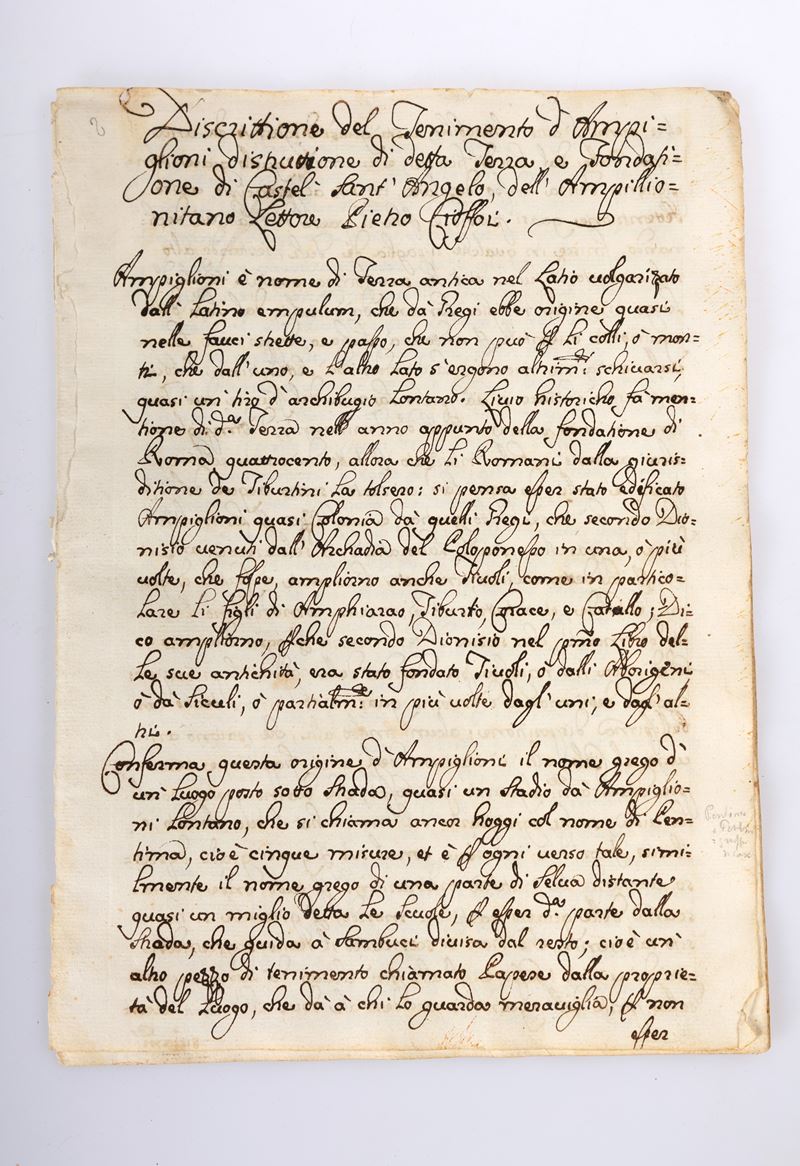 Discrittione del Tenimento d'Ampi=
glioni distrutione di detta Terra, e Fondati=
one di Castel Sant'Angelo, dell'Ampillio=
nitano Lettore Pietro Cioffoi.
Ampiglioni è nome di Terra antica nel Latio volgarizato
dall' Latino empulum, che dà Regi ebbe origine quasi
nelle fauci strette, e passo, che non può p li colli, ò mon=
ti, che dall'uno, e l'altro lato s'ergono altrim: schivarsi,
quasi un'tiro d'archibugio lontano. Livio historicho fà men=
tione di d.a Terra nell'anno appunto della fondatione di
Roma quattrocento, allora che li Romani dalla giuris=
ditione de Tiburtini la tolsero: si pensa esser stato edificato
Ampiglioni quasi Colonia dà quelli Regi, che secondo Dio=
nisio venuti dall'Archadia del Peloponesso in una, ò più
volte, che fosse, ampliorno anche Tivoli, come in partico=
lare li figli di Amphiarao, Tiburto, Corace, e Catallo; Di=
co ampliorno, p che secondo Dionisio nel pmo libro del=
le sue antichità, era stato fondato Tivoli, ò dalli Aborigeni
ò dà Siculi, ò partialm: in più volte dagl'uni, e dagl'al=
tri.
Conferma questa origine d'Ampiglioni il nome grego d'
un'luogo posto sotto strada, quasi un stadio dà Ampiglio=
ni lontano, che si chiama ancor hoggi col nome di Pen=
tima, cioè cinque misure, et è p ogni verso tale, simi=
lmente il nome grego di una parte di selva distante
quasi un miglio detta le Scuse, p esser d.a parte dalla
strada, che guida à Sambuci divisa dal resto; cioè un'
altro pezzo di tenimento chiamato Papese dalla proprie=
tà del luogo, che dà à chi lo guarda meraviglia, p non
esser